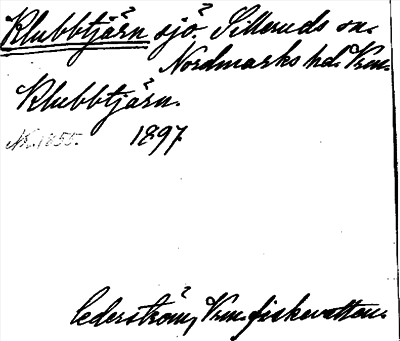 Klubbtjärn sjö. Silleruds sn.
Nordmarks hd. Vrm.
Klubbtjärn.
NK. 1855. 1897
Cederström, Vrm. fiskevatten.